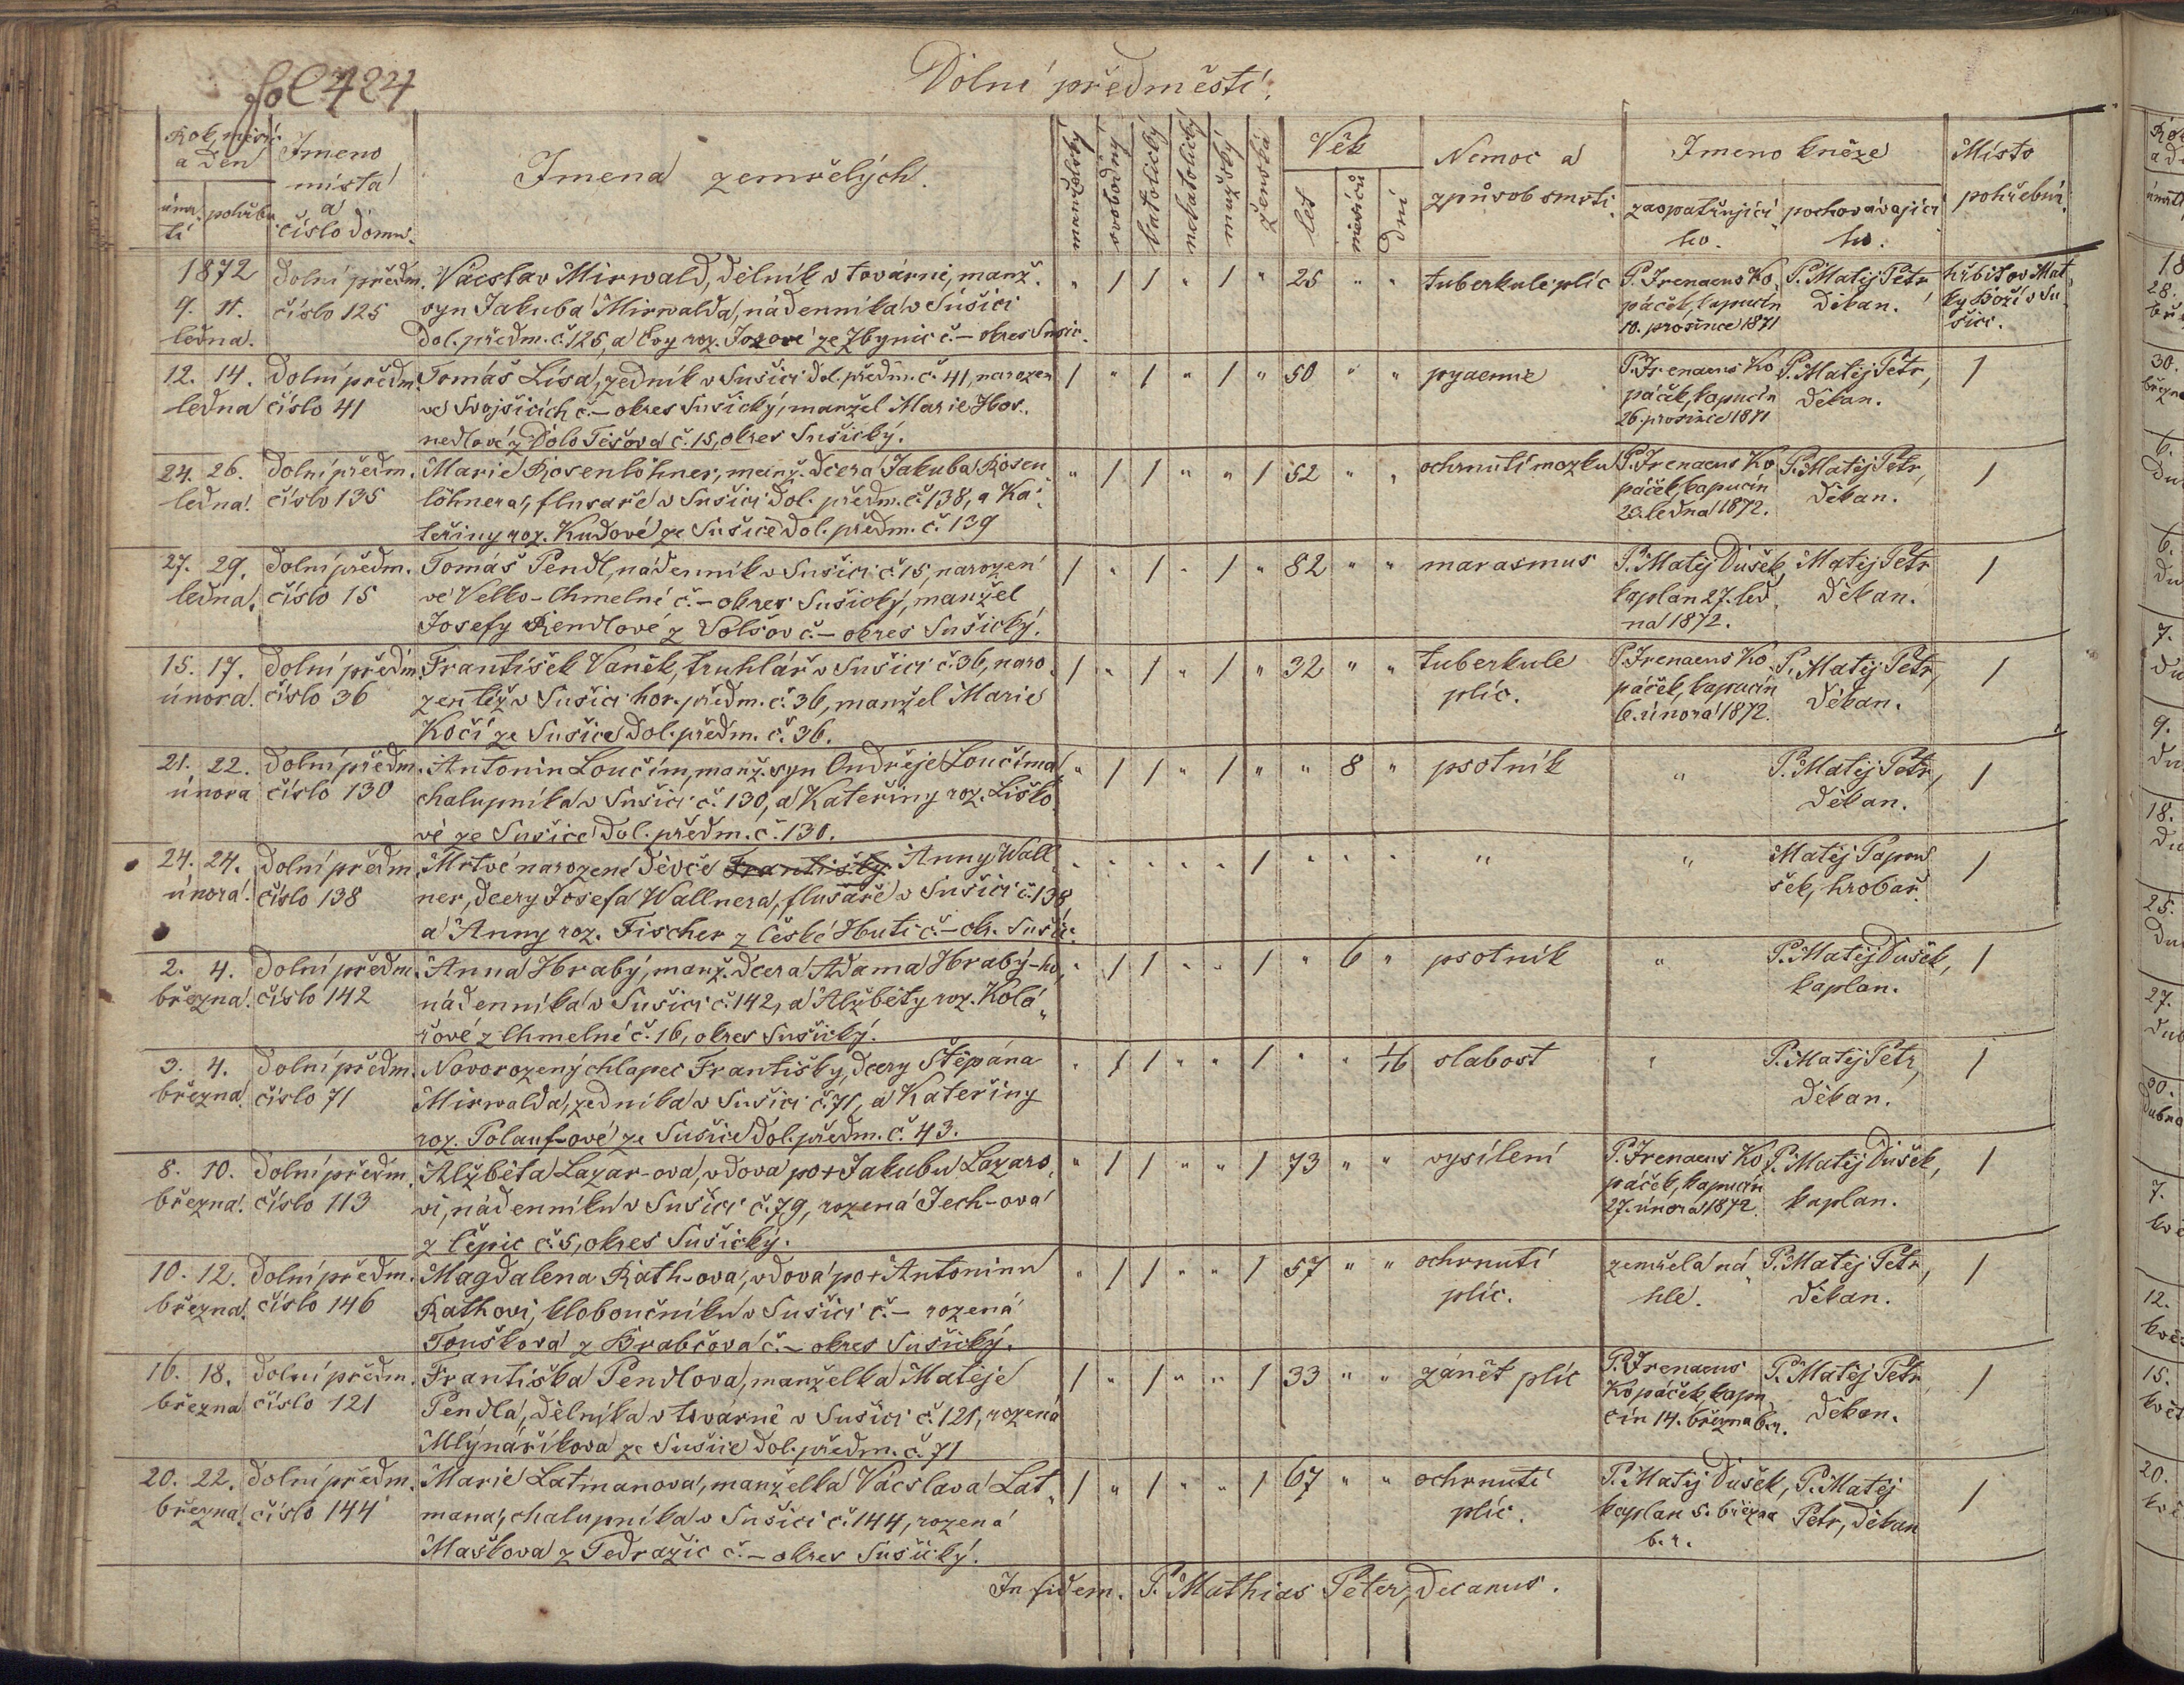 fol 424
Dolní předměstí.
Rok, měsíc a den
úmrtí pohřbu
Jmeno místa a číslo domu.
Jmena zemřelých.
manželský
svobodný
katolický
nekatolický
mužský
ženská
Věk
let
měsíců
dní
Nemoc a způsob smrti.
Jmeno kněze
zaopatřujícího. pochovávajícího.
Místo pohřební.
1872 dolní předm. Vácslav Mirwald, dělník v továrně, manž. " / / " / " 25 " " tuberkule plic P. Irenaeus Ko P. Matěj Petr hřbitov Mat
9. 11. číslo 125 syn Jakuba Mirwalda, nádenníka v Sušici páček, kapucín děkan. ky Boží v Su
ledna. dol. předm. č. 125, a Evy roz. ze Zbynic č. – okres Sušic. 10. prosince 1871 šici.
12. 14. dolní předm. Tomáš Lisa, zedník v Sušici dol. předm. č. 41, narozen / " / " / " 50 " " pyaemie P. Irenaeus Ko P. Matěj Petr, /
ledna číslo 41 ve Svojšicích č. – okres Sušický, manžel Marie Hos páček, kapucín děkan.
nedlové z Dolo Těšova č. 15, okres Sušický. 26. prosince 1871
24. 26. dolní předm. Marie Rosenlöhner, manž. dcera Jakuba Rosen " / / " " / 52 " " ochrnutí mozku P. Irenaeus Ko P. Matěj Petr, /
ledna. číslo 135 löhnera, flusaře v Sušici dol. předm. č. 138, a Ka páček, kapucín děkan.
teřiny roz. Kudové ze Sušice dol. předm. č. 139 20. ledna 1872.
27. 29. dolní předm. Tomáš Pendl, nádenník v Sušici č. 15, narozen / " / " / " 82 " " marasmus P. Matěj Dušek, Matěj Petr /
ledna. číslo 15 ve Velko-Chmelné č. – okres Sušický, manžel kaplan 27. led děkan.
Josefy Rendlové z Volšov č. – okres Sušický. na 1872.
15. 17. dolní předm František Vaněk, truhlář v Sušici č. 36, naro / " / " / " 32 " " tuberkule P. Irenaeus Ko P. Matěj Petr, /
února. číslo 36 zen též v Sušici hor. předm. č. 36, manžel Marie plic. páček, kapucín děkan.
Kočí ze Sušice dol. předm. č. 36. 6. února 1872.
21. 22. dolní předm. Antonin Loučím, manž. syn Ondřeje Loučíma " / / " / " " 8 " psotník " P. Matěj Petr, /
února číslo 130 chalupníka v Sušici č. 130, a Kateřiny roz. Liško děkan.
vé ze Sušice dol. předm. č. 130.
24. 24. dolní předm Mrtvě narozené děvče Františky Anny Wall " " " " " / " " " " " Matěj Papou /
února. číslo 138 ner, dcery Josefa Wallnera, flusaře v Sušici č. 138, šek, hrobař.
a Anny roz. Fischer z České Huti č. – ok. Sušic.
2. 4. dolní předm. Anna Hrabý, manž. dcera Adama Hrabý-ho, " / / " " / " 6 " psotník " P. Matěj Dušek, /
března. číslo 142 nádenníka v Sušici č. 142, a Alžběty roz. Kolá kaplan.
řové z Chmelné č. 16, okres Sušický.
3. 4. dolní předm. Novorozený chlapec Františky, dcery Štěpána " / / " " / " " 1/16 slabost " P. Matěj Petr, /
března. číslo 71 Mirwalda, zedníka v Sušici č. 71, a Kateřiny děkan.
roz. Polauf-ové ze Sušice dol. předm. č. 43.
8. 10. dolní předm. Alžběta Lazar-ova, vdova po + Jakubu Lazaro " / / " " / 73 " " vysílení P. Irenaeus Ko P. Matěj Dušek, /
března. číslo 113 vi, nádenníku v Sušici č. 79, rozená Jech-ova páček, kapucín kaplan.
z Čepic č. 5, okres Sušický. 27. února 1872.
10. 12. dolní předm. Magdalena Rath-ova, vdova po + Antoninu " / / " " / 57 " " ochrnutí zemřela ná P. Matěj Petr, /
března. číslo 146 Rathovi, kloboučníku v Sušici č. – rozená plic. hle. děkan.
Touškova z Brabčova č. – okres Sušický.
16. 18. dolní předm. Františka Pendlova, manželka Matěje / " / " " / 33 " " zánět plic P. Irenaeus P. Matěj Petr /
března číslo 121 Pendla, dělníka v továrně v Sušici č. 121, rozená Kopáček, kapu děkan.
Mlynáříkova ze Sušice dol. předm. č. 71 cín 14. března b. r.
20. 22. dolní předm. Marie Latmanova, manželka Vácslava Lat / " / " " / 67 " " ochrnutí P. Matěj Dušek, P. Matěj /
března. číslo 144 mana, chalupníka v Sušici č. 144, rozená plic. kaplan 5. března Petr, děkan
Maškova z Tedražic č. – okres Sušický. b. r.
In fidem. P. Mathias Peter, decanus.